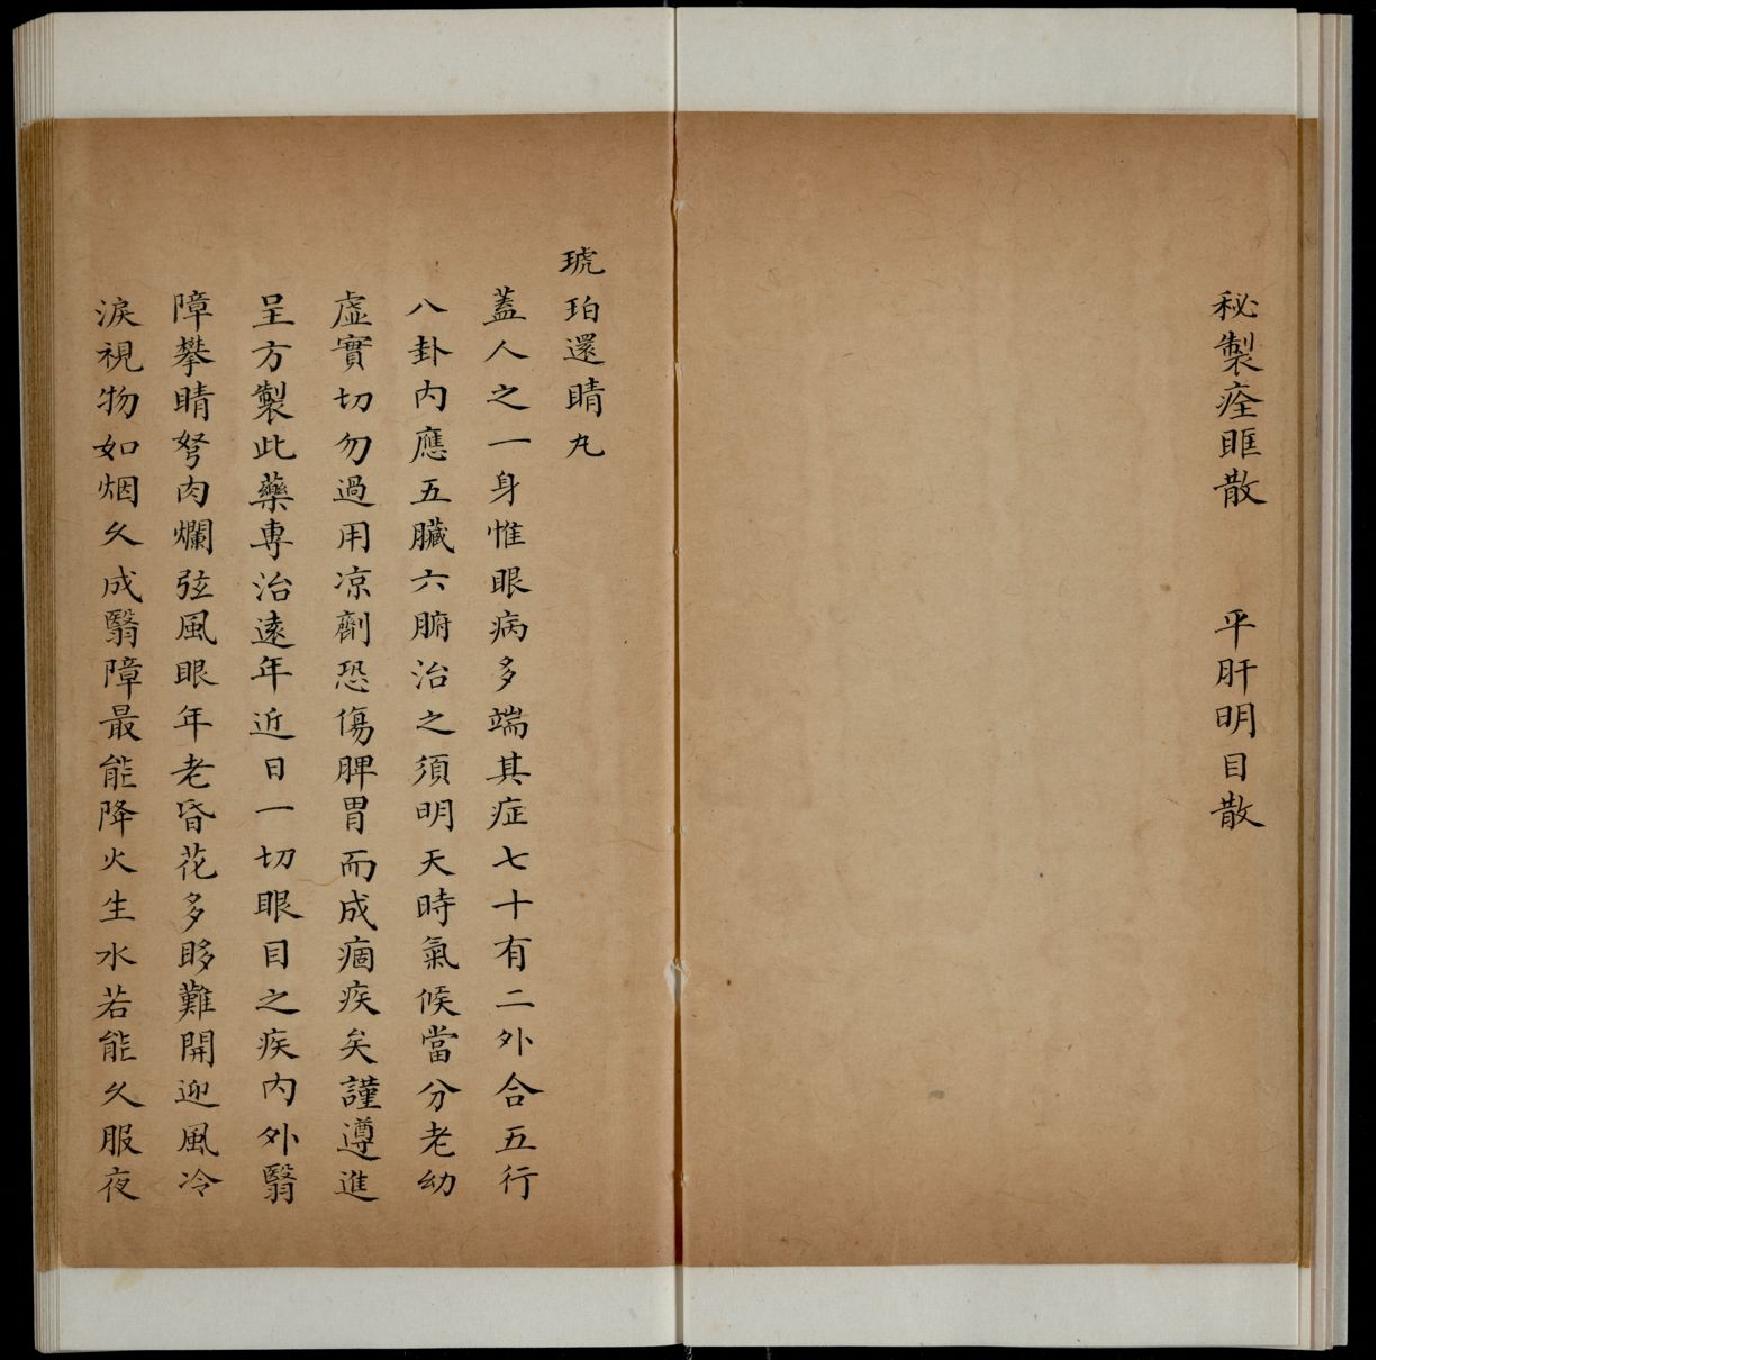 秘製痊眶散　平肝明目散
琥珀還睛丸
蓋人之一身惟眼病多端其症七十有二外合五行
八卦内應五臟六腑治之須明天時氣候當分老幼
虛實切勿過用凉劑恐傷脾胃而成痼疾矣謹遵進
呈方製此藥專治遠年近日一切眼目之疾内外翳
障攀睛胬肉爛弦風眼年老昏花多眵難開迎風冷
淚視物如烟久成翳障最能降火生水若能久服夜